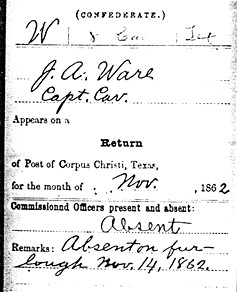 (CONFEDERATE.)
W | 8 Cav. | Tex
J. A. Ware
Capt. Cav.
Appears on a
Return
of Post of Corpus Christi, Texas,
for the month of Nov., 1862
Commissionnd Officers present and absent:
Absent
Remarks: Absent on fur-
lough Nov. 14, 1862.